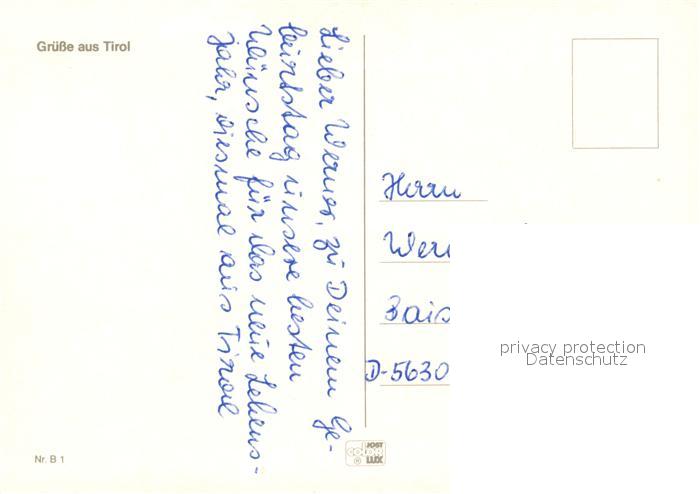 Grüße aus Tirol
Lieber Werner, zu Deinem Ge-
burtstag unsere besten
Wünsche für das neue Lebens-
jahr, diesmal aus Tirol
Herrn
Wer
Bais
D-5630
privacy protection
Datenschutz
Nr. B 1
JOST
COLOR
LUX